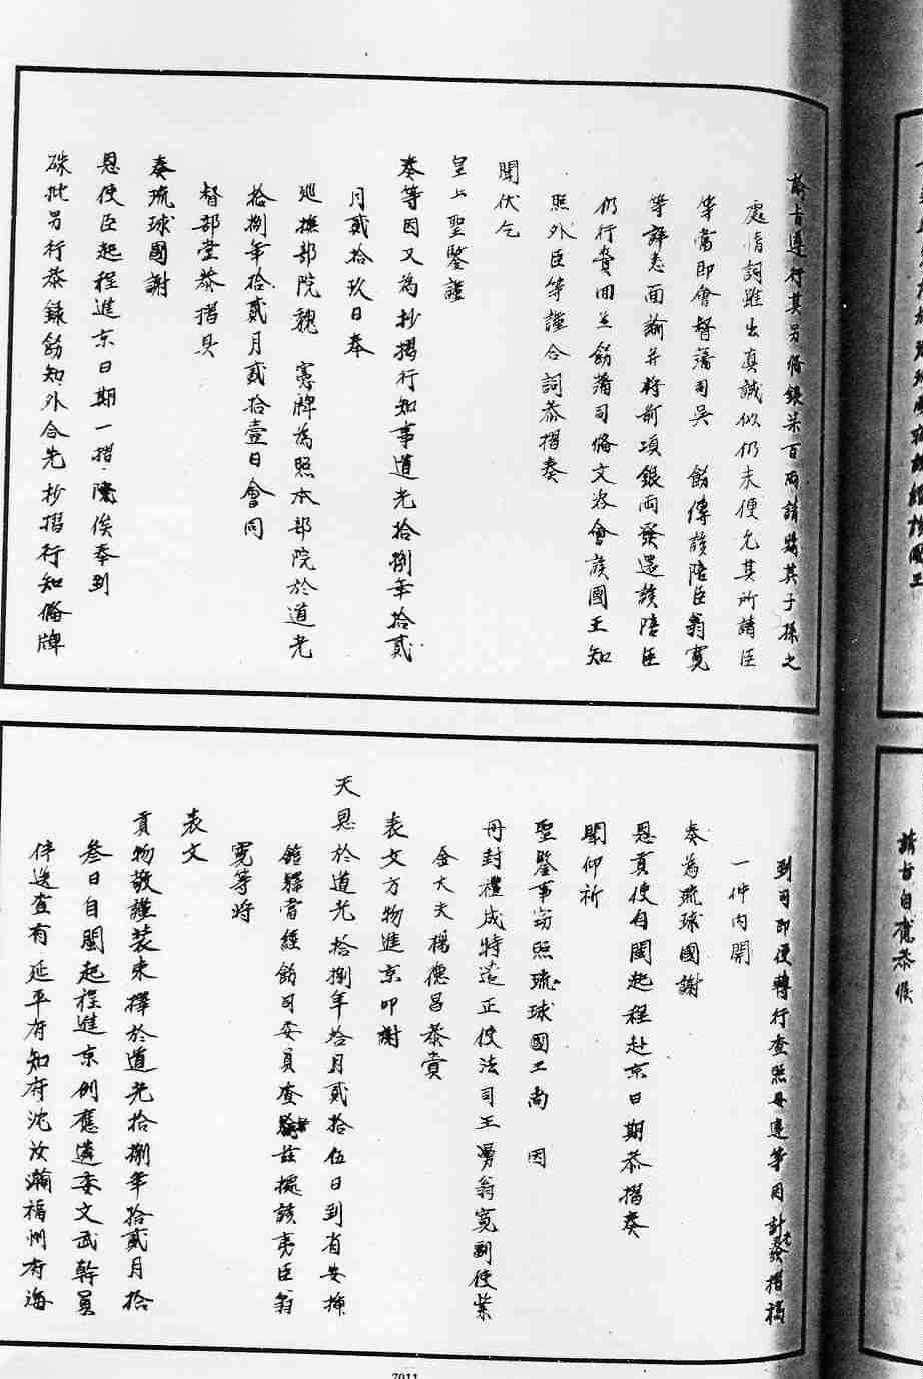 諭旨遵行其另備銀叁百兩請將其子孫之
處情詞雖出真誠似仍未便允其所請臣
等當即會督藩司吳 飭傳該陪臣翁寬
等詳悉面諭并將前項銀兩發還該陪臣
仍行賫囬並飭藩司備文咨會該國王知
照外臣等謹合詞恭摺奏
聞伏乞
皇上聖鑒謹
奏等因又為抄摺行知事道光拾捌年拾貳
月貳拾玖日奉
巡撫部院魏 憲牌為照本部院於道光
拾捌年拾貳月貳拾壹日會同
督部堂恭摺具
奏琉球國謝
恩使臣起程進京日期一摺除俟奉到
硃批另行恭錄飭知外合先抄摺行知備牌
到司即便轉行查照毋違等因計發摺稿
一件內開
奏為琉球國謝
恩貢使自閩起程赴京日期恭摺奏
聞仰祈
聖鑒事窃照琉球國王尚 因
冊封禮成特遣正使法司王舅翁寬副使紫
金大夫楊德昌恭賫
表文方物進京叩謝
天恩於道光拾捌年拾月貳拾伍日到省安揷
舘驛當經飭司委員查驗茲據該夷臣翁
寬等將
表文
貢物敬謹装束擇於道光拾捌年拾貳月拾
叁日自閩起程進京例應遴委文武幹員
伴送查有延平府知府沈汝瀚福州府海
請旨自應恭候
7011